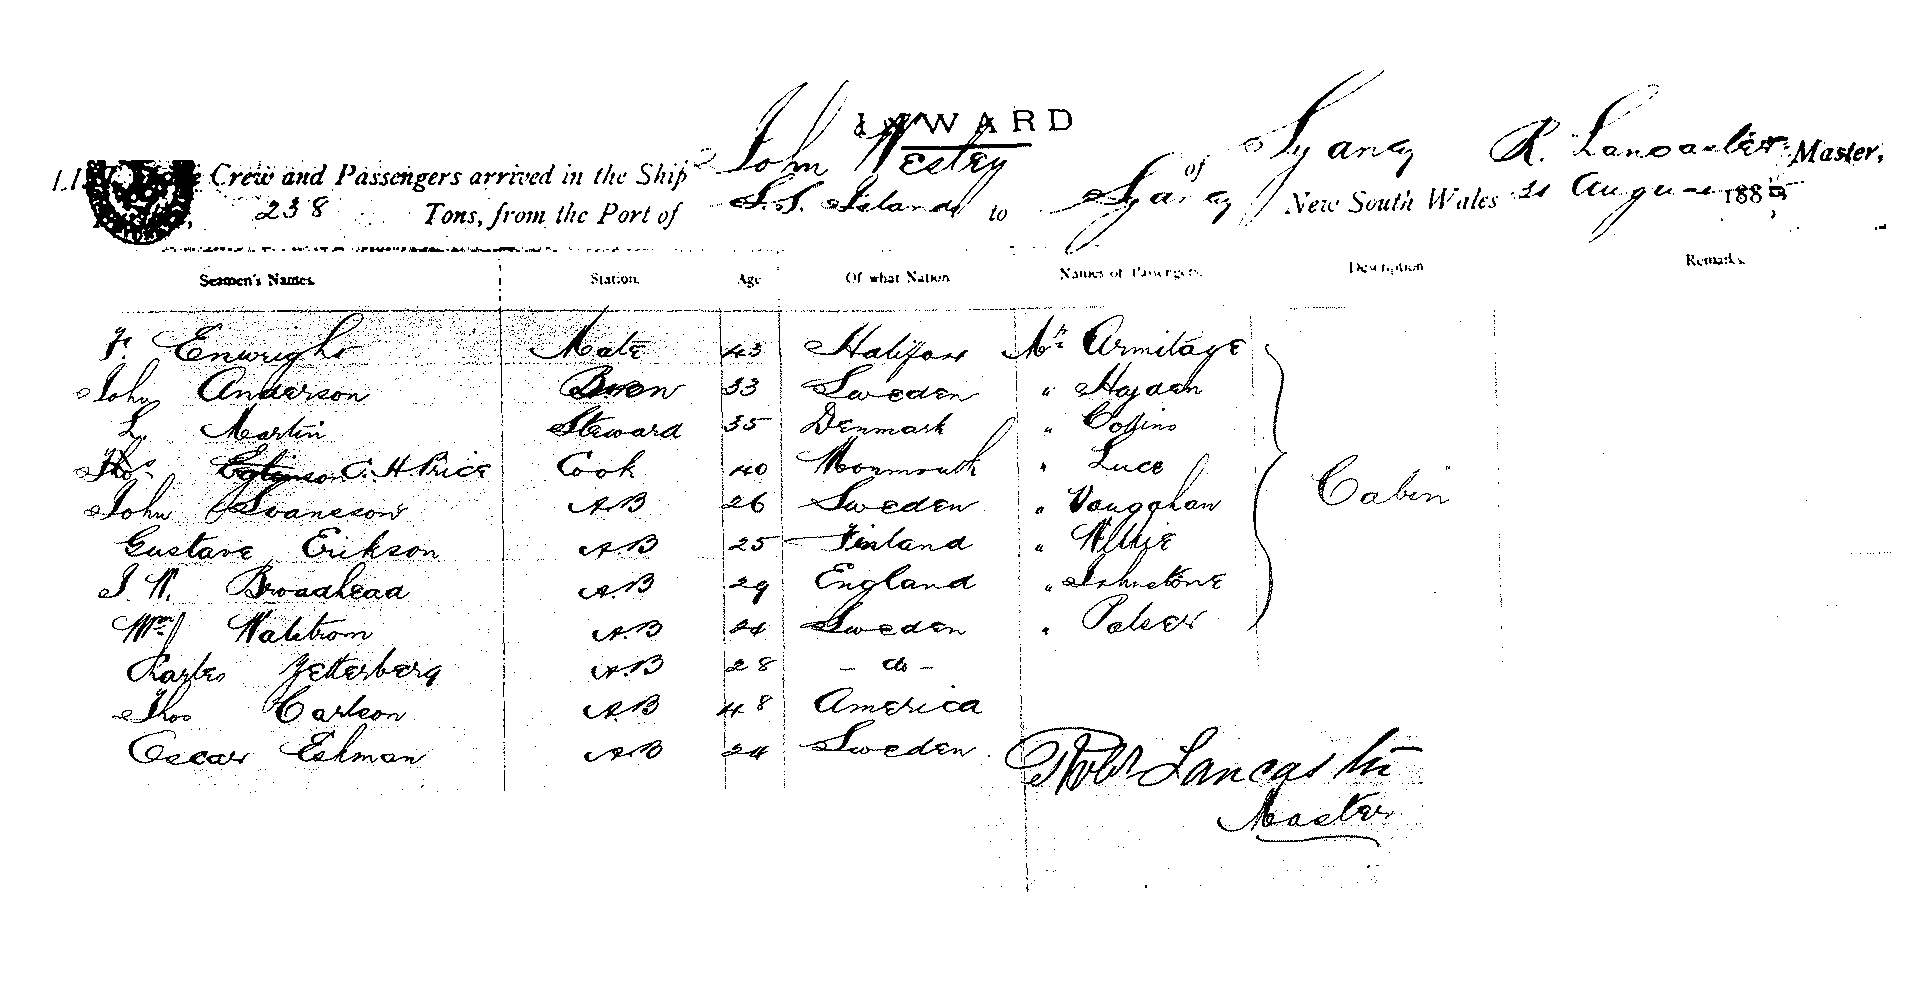 INWARD
Crew and Passengers arrived in the Ship John Wesley of Sydney R. Lancaster Master,
238 Tons, from the Port of S.S. Islands to Sydney New South Wales 31 August 1885
Seamen's Names. Station. Age Of what Nation Names of Passengers. Description Remarks.
Enwright Mate 43 Halifax Mr Armitage
John Anderson Bosen 33 Sweden " Hayden
L. Martin Steward 35 Denmark " Collins
Thos C. H Price Cook 40 Monmouth " Luce
John Svansson AB 26 Sweden " Vaughan Cabin
Gustave Erikson AB 25 Finland " Wilkie
J. W. Broadhead AB 29 England " Johnstone
Wm Walstrom AB 24 Sweden " Palser
Charles Zetterberg AB 28 - do -
Thos Carlson AB 48 America
Oscar Eshman AB 24 Sweden
Robt Lancaster
Master